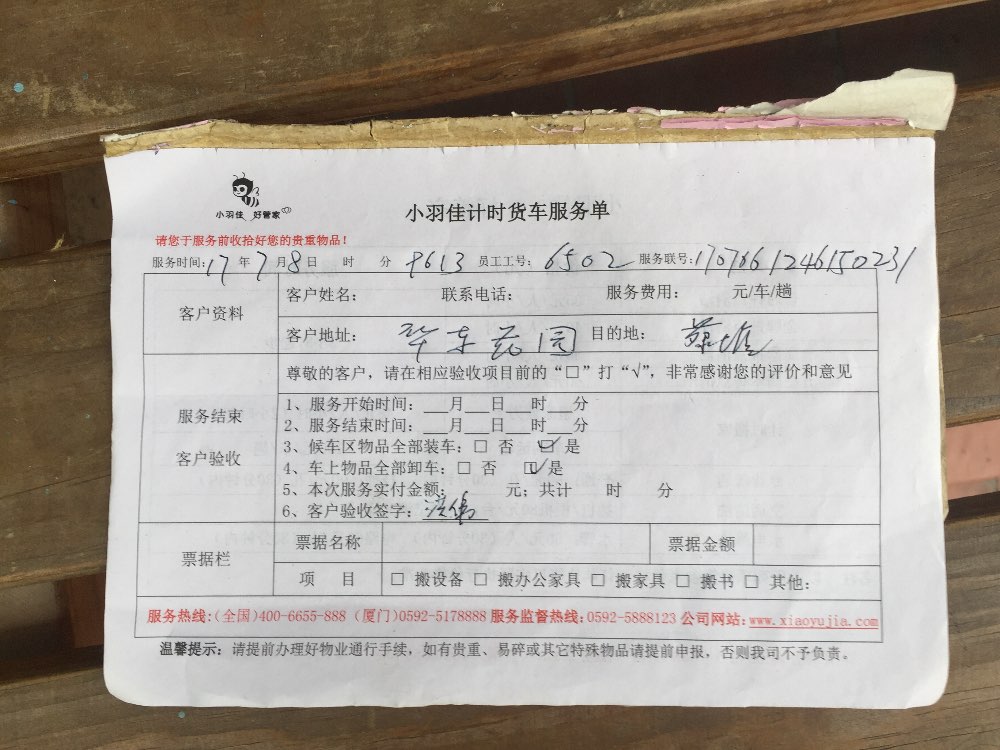 小羽佳 好管家
小羽佳计时货车服务单
请您于服务前收拾好您的贵重物品！
服务时间：17 年 7 月 8 日 时 分 9613 员工工号：6502 服务联号：1707861246150231
客户资料
客户姓名： 联系电话： 服务费用： 元/车/趟
客户地址： 华东花园 目的地：
尊敬的客户，请在相应验收项目前的“□”打“√”，非常感谢您的评价和意见
服务结束
客户验收
1、服务开始时间：___月___日___时___分
2、服务结束时间：___月___日___时___分
3、候车区物品全部装车：□ 否 ☑ 是
4、车上物品全部卸车：□ 否 ☑ 是
5、本次服务实付金额： 元；共计 时 分
6、客户验收签字：
票据栏
票据名称 票据金额
项 目 □ 搬设备 □ 搬办公家具 □ 搬家具 □ 搬书 □ 其他：
服务热线：(全国)400-6655-888 (厦门)0592-5178888 服务监督热线：0592-5888123 公司网站：www.xiaoyujia.com
温馨提示：请提前办理好物业通行手续，如有贵重、易碎或其它特殊物品请提前申报，否则我司不予负责。